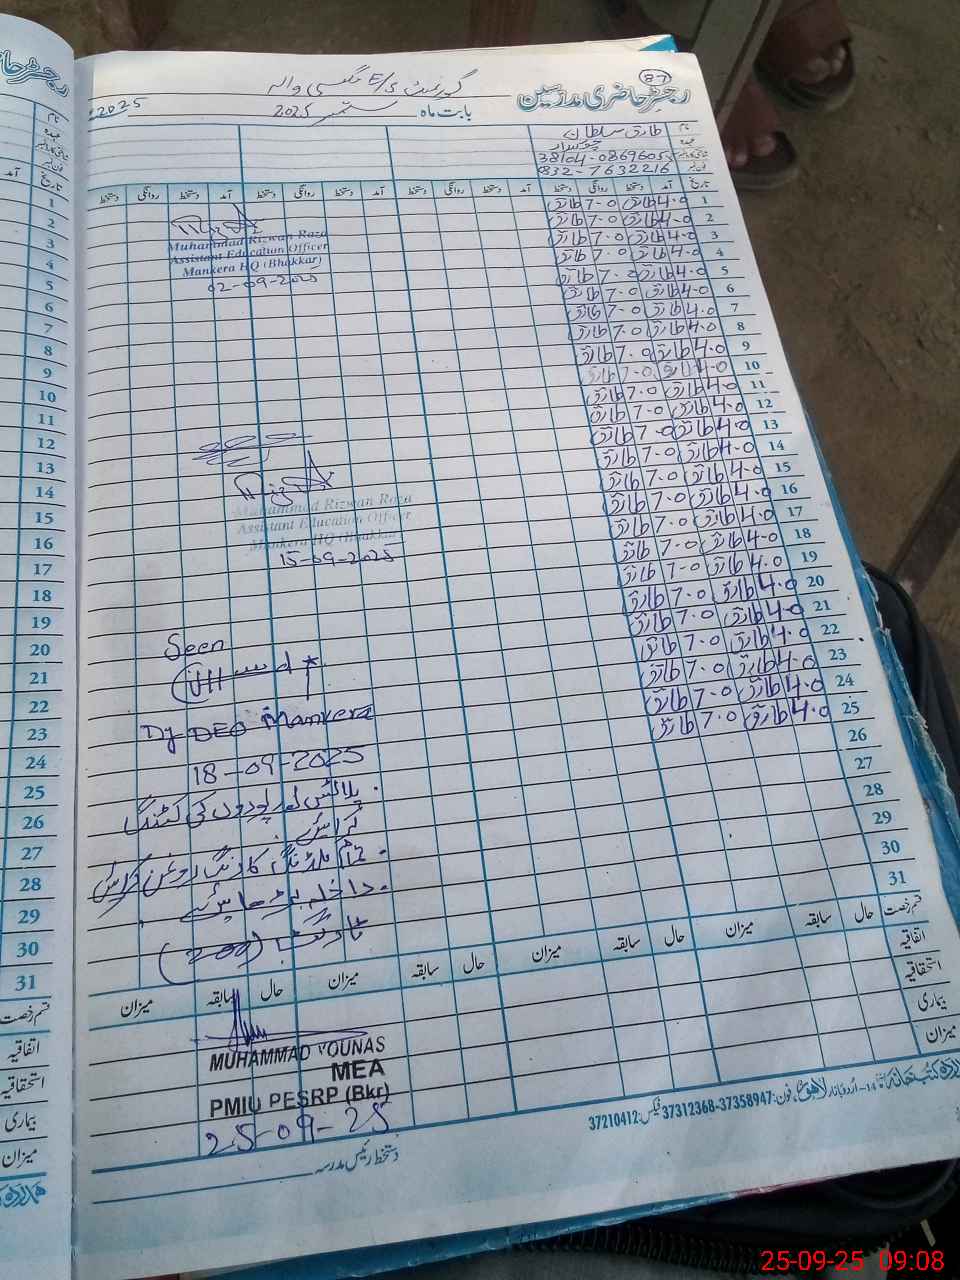 رجسٹر حاضری مدرسین
87
گورنمنٹ E/S
بابت ماہ ستمبر 2025
2025
نام طارق سلطان
عہدہ چوکیدار
38104-0869605
0332-7632216
تاریخ آمد دستخط روانگی دستخط آمد دستخط روانگی دستخط آمد دستخط روانگی دستخط
1 4.0 طارق 7.0 طارق
2 4.0 طارق 7.0 طارق
3 4.0 طارق 7.0 طارق
4 4.0 طارق 7.0 طارق
5 4.0 طارق 7.0 طارق
6 4.0 طارق 7.0 طارق
7 4.0 طارق 7.0 طارق
8 4.0 طارق 7.0 طارق
9 4.0 طارق 7.0 طارق
10 4.0 طارق 7.0 طارق
11 4.0 طارق 7.0 طارق
12 4.0 طارق 7.0 طارق
13 4.0 طارق 7.0 طارق
14 4.0 طارق 7.0 طارق
15 4.0 طارق 7.0 طارق
16 4.0 طارق 7.0 طارق
17 4.0 طارق 7.0 طارق
18 4.0 طارق 7.0 طارق
19 4.0 طارق 7.0 طارق
20 4.0 طارق 7.0 طارق
21 4.0 طارق 7.0 طارق
22 4.0 طارق 7.0 طارق
23 4.0 طارق 7.0 طارق
24 4.0 طارق 7.0 طارق
25 4.0 طارق 7.0 طارق
26
27
28
29
30
31
Muhammad Rizwan Raza
Assistant Education Officer
Mankera HQ (Bhakkar)
02-09-2025
Muhammad Rizwan Raza
Assistant Education Officer
Mankera HQ (Bhakkar)
15-09-2025
Seen
Dy DEO Mankera
18-09-2025
پودوں کی کٹنگ
کرائیں
تمام بلڈنگ کا رنگ روغن کرائیں
داخلہ بڑھائیں
ٹارگٹ (200)
قسم رخصت حال سابقہ میزان حال سابقہ میزان حال سابقہ میزان حال سابقہ میزان
اتفاقیہ
استحقاقیہ
بیماری
میزان
MUHAMMAD YOUNAS
MEA
PMIU PESRP (Bkr)
25-09-25
دستخط رئیس مدرسہ
اردو بازار لاہور فون: 37358947-37312368 فیکس: 37210412
رجسٹر حاضری
نام
عہدہ
تاریخ آمد
1
2
3
4
5
6
7
8
9
10
11
12
13
14
15
16
17
18
19
20
21
22
23
24
25
26
27
28
29
30
31
قسم رخصت
اتفاقیہ
استحقاقیہ
بیماری
میزان
25-09-25 09:08